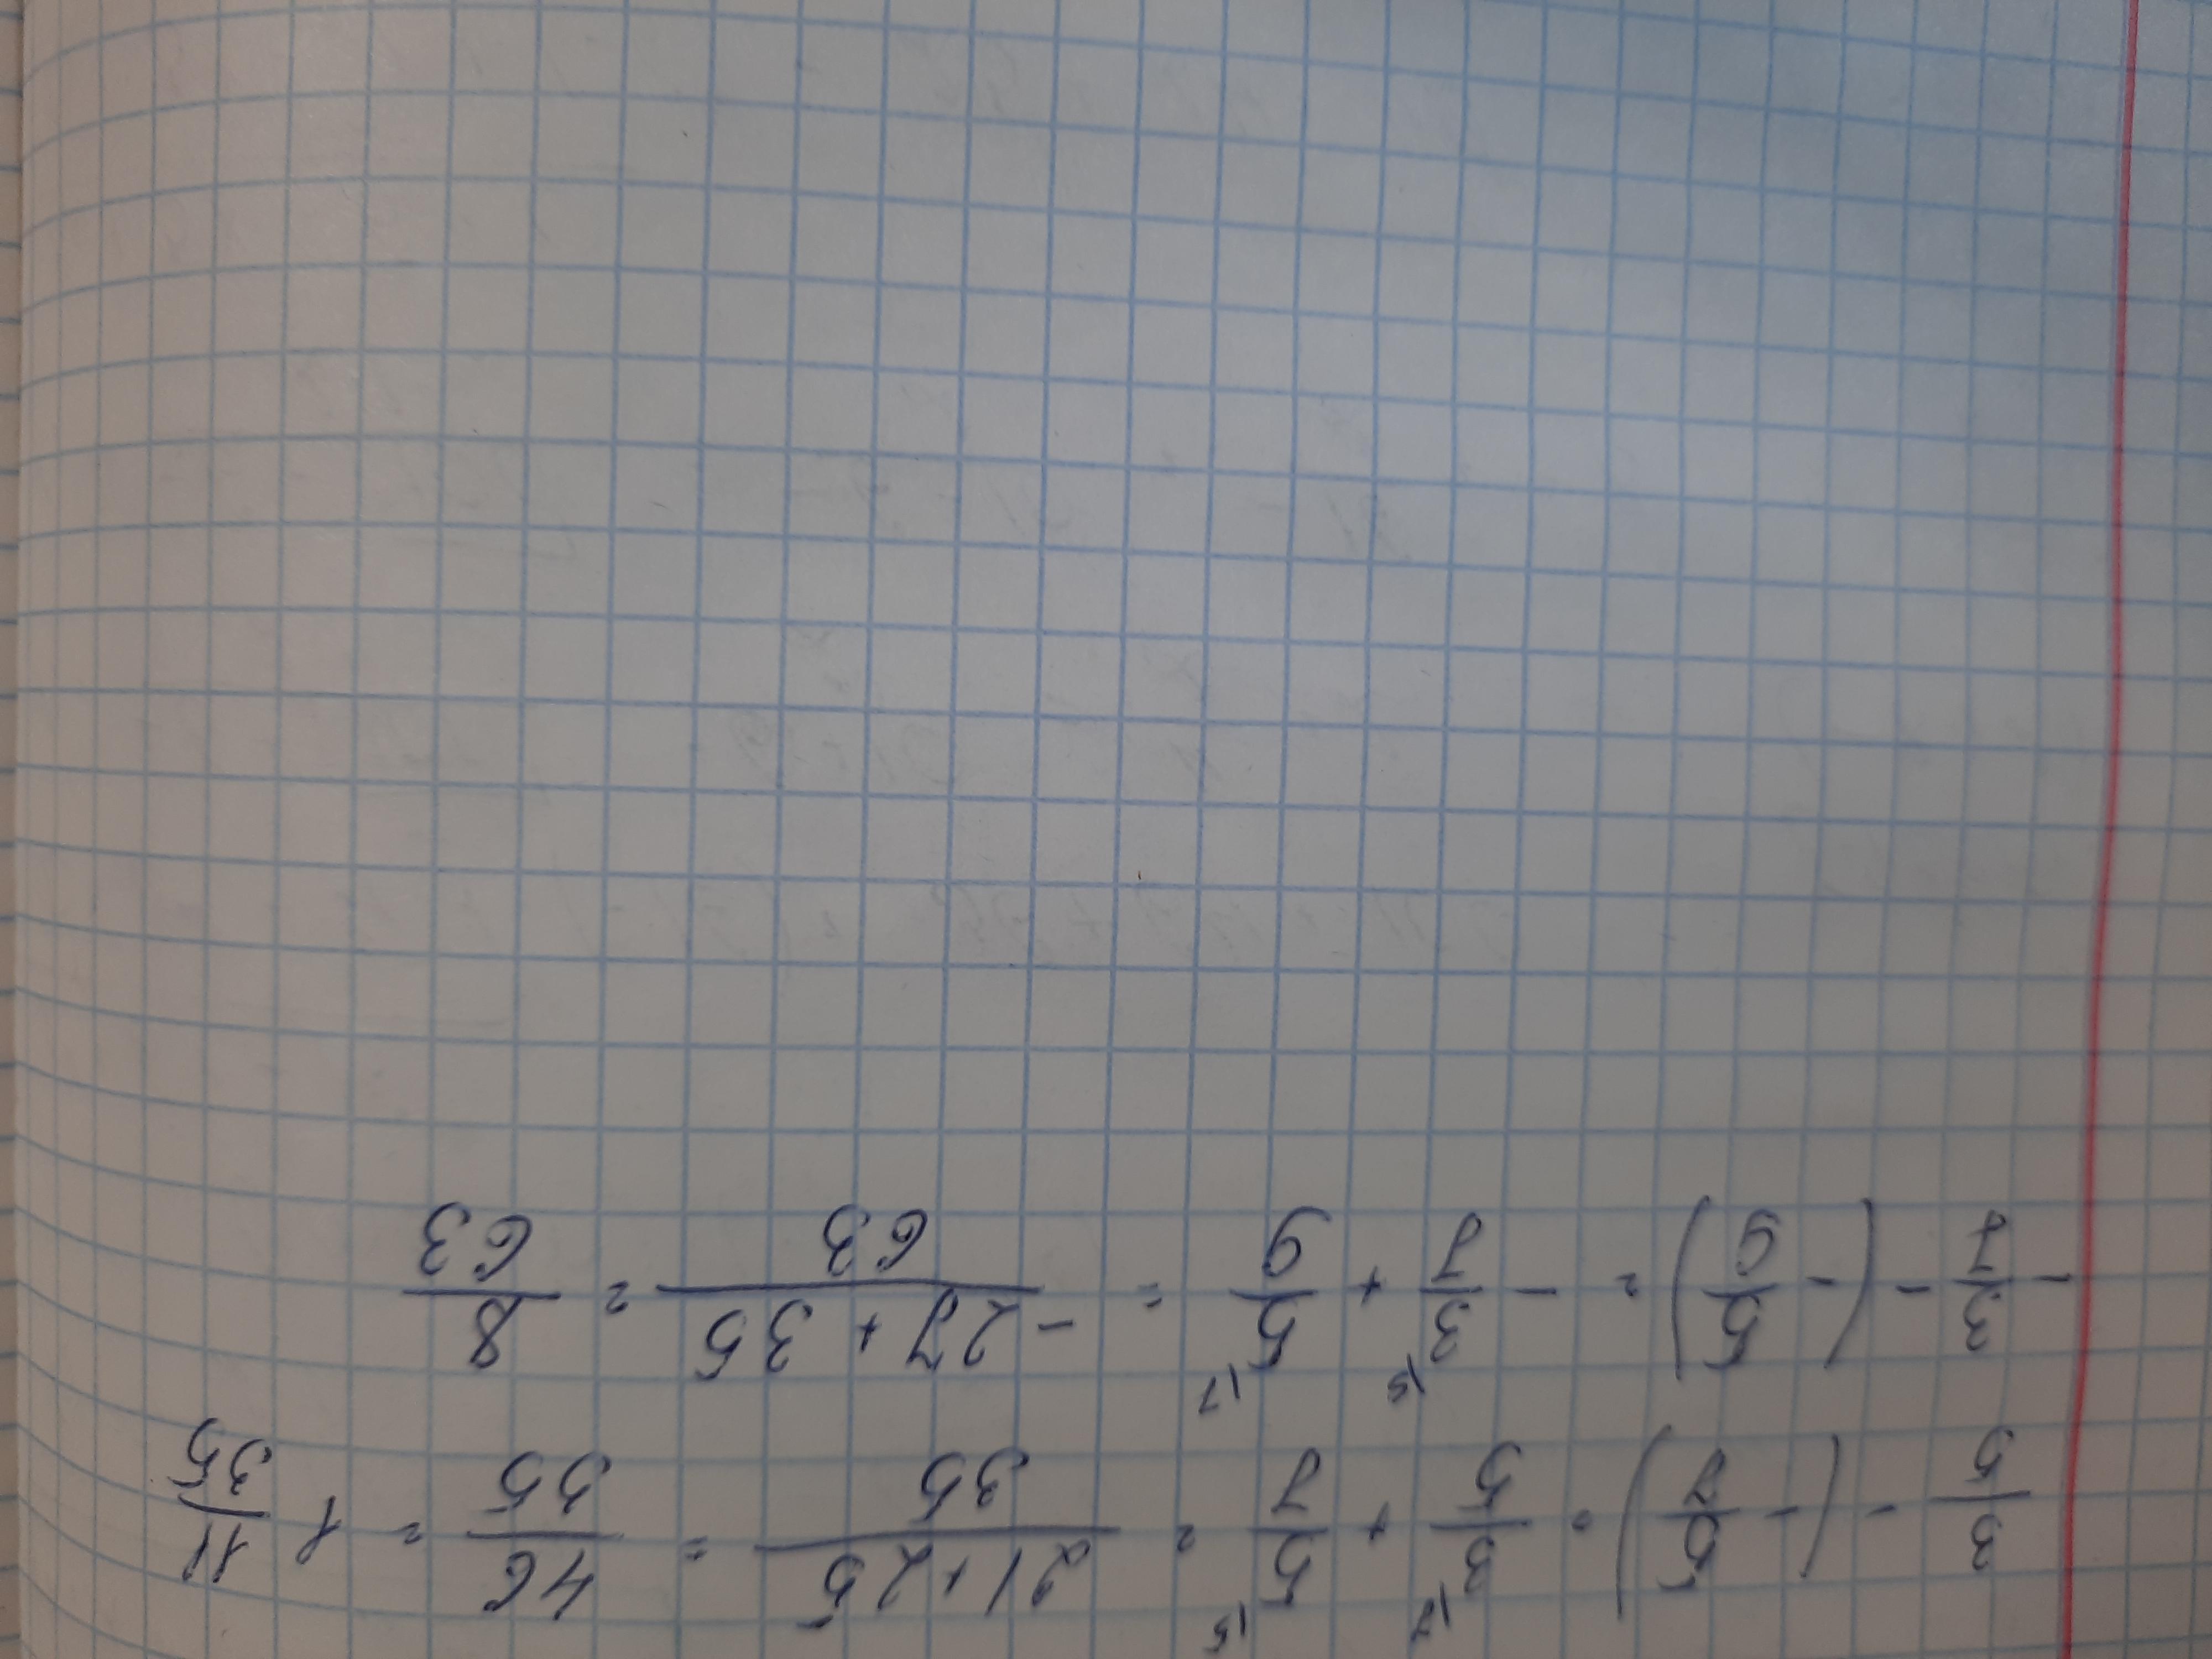 3/5 - (-5/7) = 3\7/5 + 5\5/7 = 21+25/35 = 46/35 = 1 11/35
-3/7 - (-5/9) = -3\9/7 + 5\7/9 = -27+35/63 = 8/63